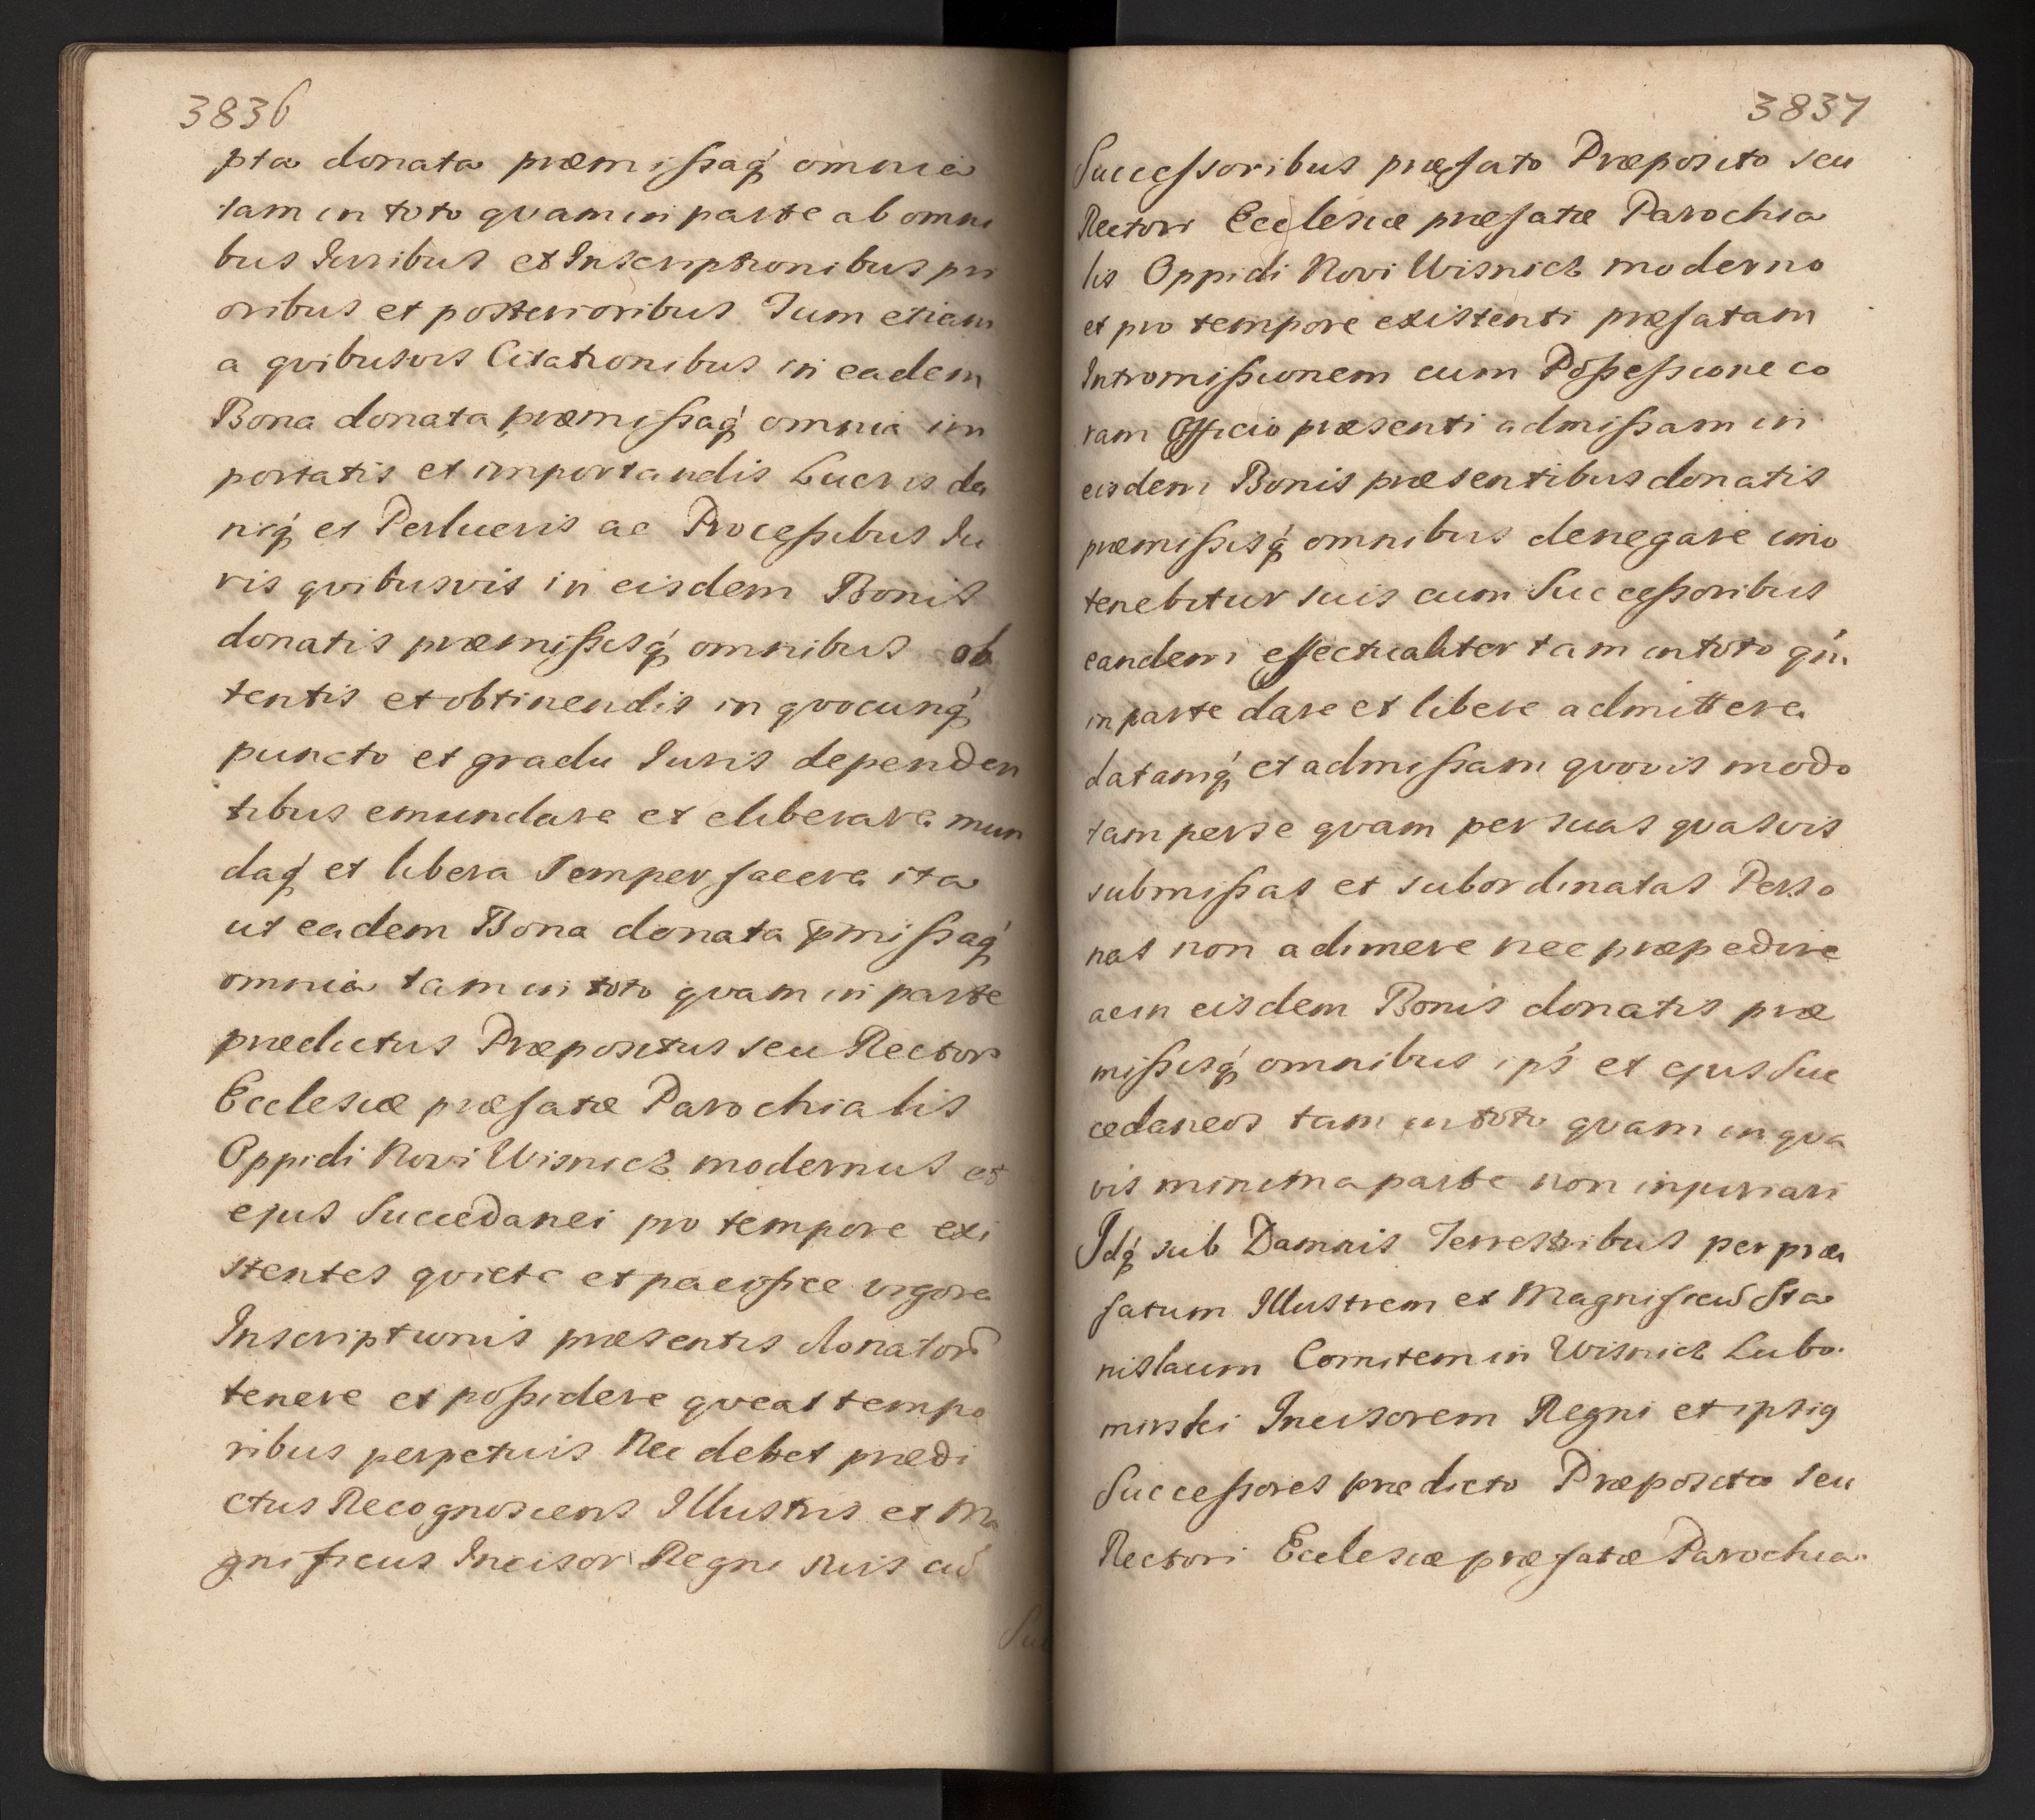 3836
pta donata præmissaq́ omnia
tam in toto qvam in parte ab omni
bus Juribus et Inscriptionibus pri
oribus et posterioribus Tum etiam
a qvibusvis Citationibus in eadem
Bona donata præmissaq́ omnia im
portatis et importandis Lucris da
niq́ et Perlucris ac Processibus Ju
ris qvibusvis in eisdem Bonis
donatis præmissisq́ omnibus ob
tentis et obtinendis in qvocunq́
puncto et gradu Juris dependen
tibus emundare et eliberare mun
daq́ et libera semper facere ita
ut eadem Bona donata pmissaq́
omnia tam in toto qvam in parte
prædictus Præpositus seu Rector
Ecclesiæ præfatæ Parochialis
Oppidi Novi Wisnicz modernus et
ejus Succedanei pro tempore exi
stentes qviete et pacifice vigore
Inscriptionis præsentis donatoriæ
tenere et possidere qveat tempo
ribus perpetuis Nec debet prædi
ctus Recognoscens Illustris et Ma
gnificus Incisor Regni suis cũ
Suc
3837
Successoribus præfato Præposito seu
Rectori Ecclesiæ præfatæ Parochia
lis Oppidi Novi Wisnicz moderno
et pro tempore existenti præfatam
Intromissionem cum Possessione co
ram Officio præsenti admissam in
eisdem Bonis præsentibus donatis
præmissisq́ omnibus denegare imo
tenebitur suis cum Successoribus
eandem effectualiter tam in toto qm̃
in parte dare et libere admittere
datamq́ et admissam qvovis modo
tam per se qvam per suas qvasvis
submissas et subordinatas Perso
nas non adimere nec præpedire
ac in eisdem Bonis donatis præ
missisq́ omnibus ips̃ et ejus Suc
cedaneos tam in toto qvam in qva
vis minima parte non injuriari
Idq́ sub Damnis Terrestribus per præ
fatum Illustrem et Magnificũ Sta
nislaum Comitem in Wisnicz Lubo
mirski Incisorem Regni et ipsig
Successores prædicto Præposito seu
Rectori Ecclesiæ præfatæ Parochia